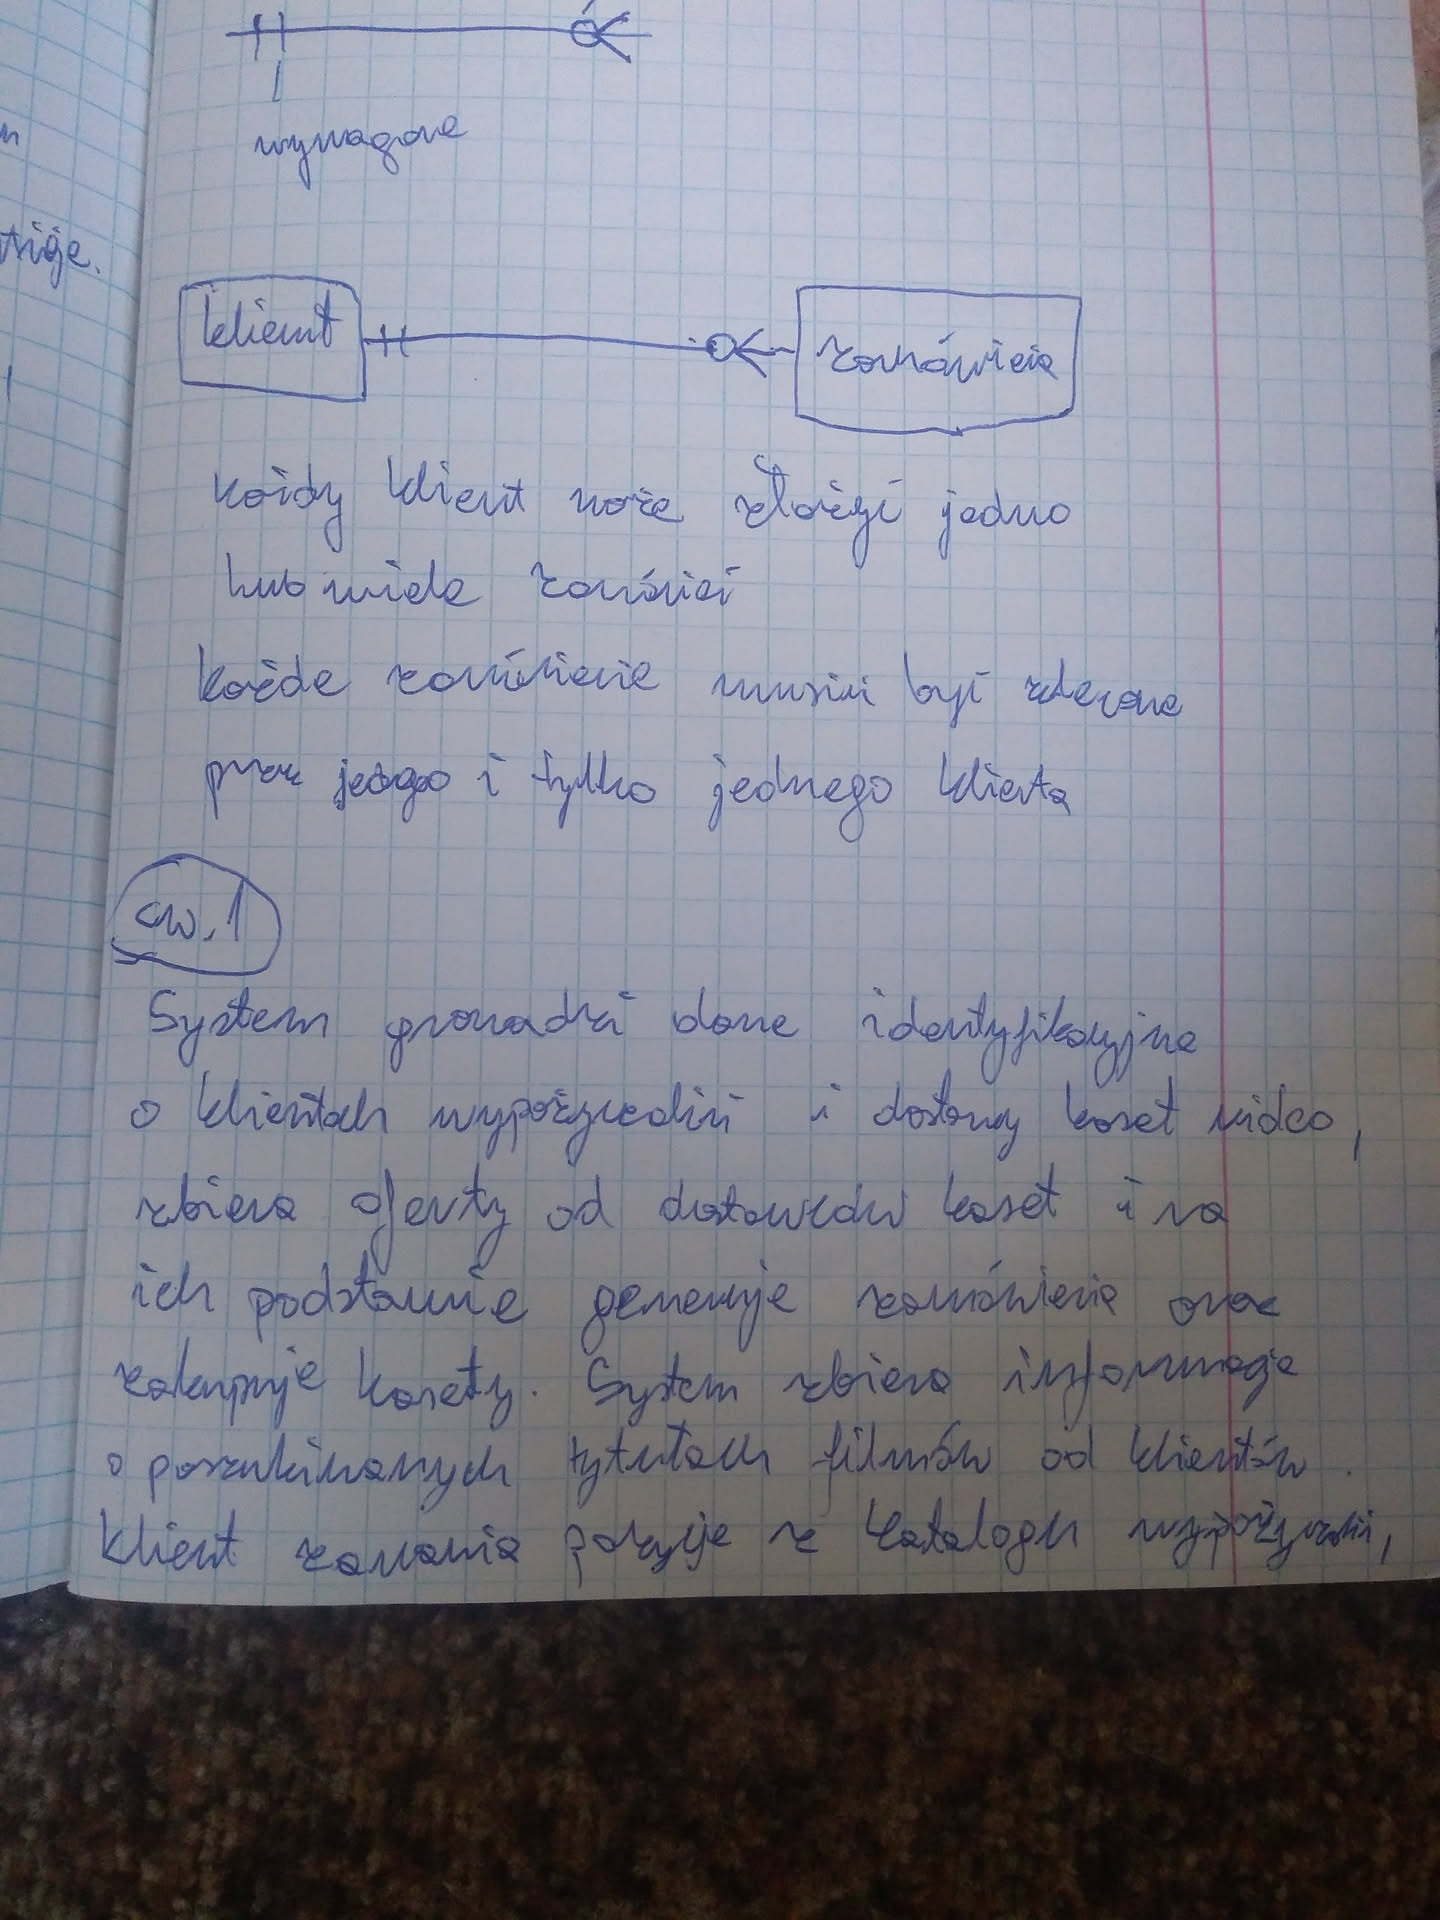 wymagane
klient
zamówienia
każdy klient może złożyć jedno
lub wiele zamówień
każde zamówienie musi być zlecone
przez jednego i tylko jednego klienta
ćw. 1
System gromadzi dane identyfikacyjne
o klientach wypożyczalni i dostawcy kaset video,
zbiera oferty od dostawców kaset i na
ich podstawie generuje zamówienia oraz
zakupuje kasety. System zbiera informacje
o poszukiwanych tytułach filmów od klientów.
Klient zamawia pozycje z katalogu wypożyczalni,